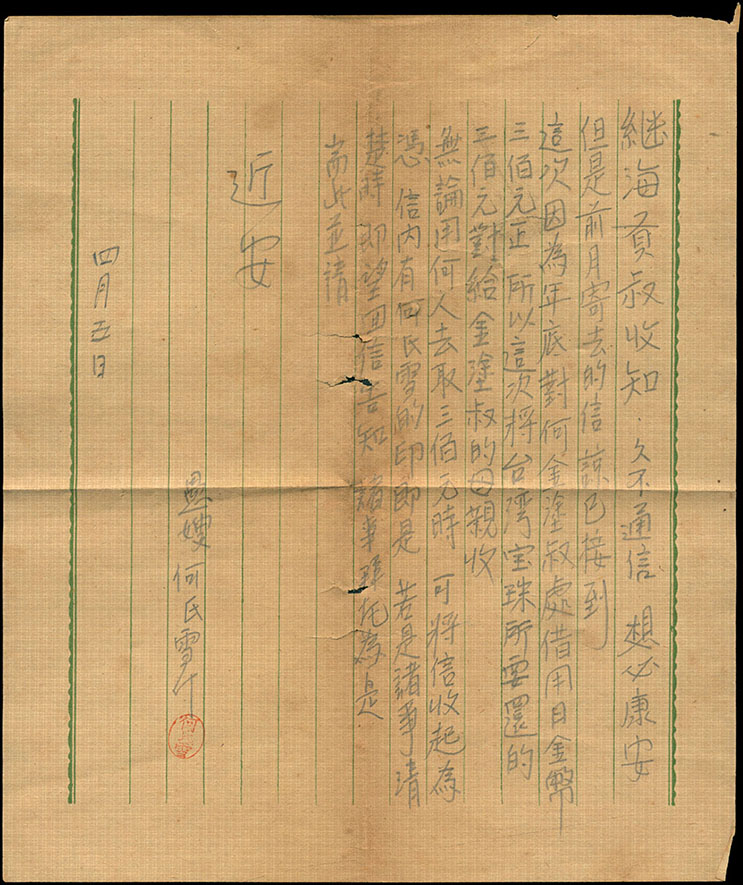 继海貢叔收知 久不通信 想必康安
但是前月寄去的信諒已接到
這次因為年底對何金塗叔處借用日金幣
三佰元正 所以這次將台湾宝珠所要還的
三佰元對給金塗叔的母親收
無論用何人去取三佰元時 可將信收起為
憑 信內有何氏雪的印即是 若是諸事清
楚時 即望回信告知 諸事拜托為是
耑此並請
近安
愚嫂 何氏雪
四月五日